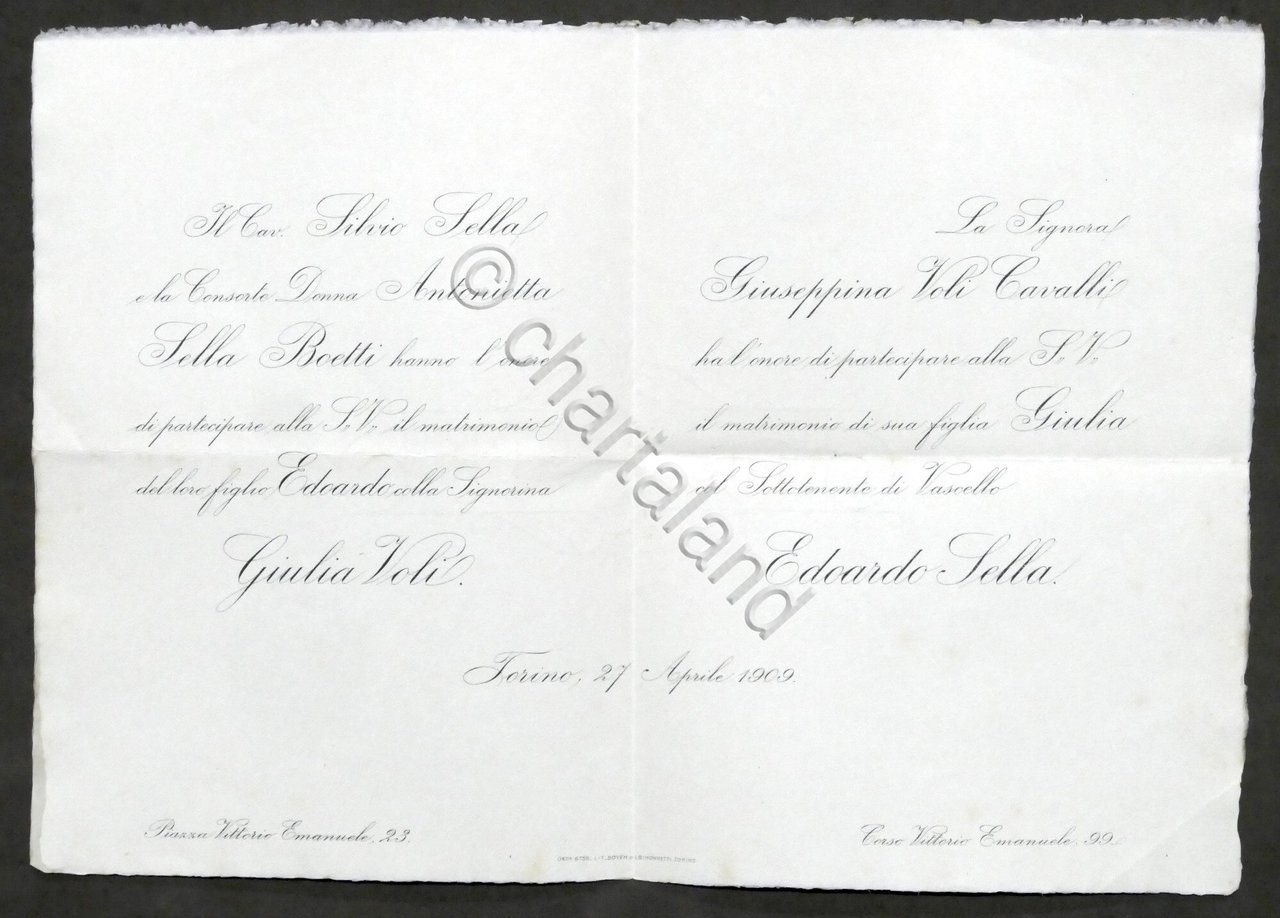 Il Cav. Silvio Sella
e la Consorte Donna Antonietta
Sella Boetti hanno l'onore
di partecipare alla S. V. il matrimonio
del loro figlio Edoardo colla Signorina
Giulia Voli.
La Signora
Giuseppina Voli Cavalli
ha l'onore di partecipare alla S. V.
il matrimonio di sua figlia Giulia
col Sottotenente di Vascello
Edoardo Sella.
Torino, 27 Aprile 1909.
Piazza Vittorio Emanuele, 23
Corso Vittorio Emanuele, 99.
© chartaland